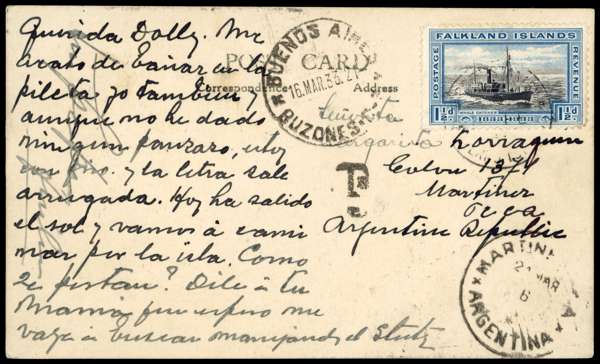 Querida Dolly. Me
acabo de bañar en la
pileta yo tambien y
aunque no he dado
ningun panzazo, estoy
y la letra sale
arrugada. Hoy ha salido
el sol y vamos á cami
nar por la isla. Como
se portan? Dile á tu
Mamá que espero me
vaya á buscar manejando el Stutz
POST CARD
Correspondence
Address
BUENOS AIRES
16.MAR.36.21
BUZONES
FALKLAND ISLANDS
POSTAGE
REVENUE
WHALE CATCHER
1½d
1½d
Señorita
Margarita Lorraquin
Colon 1371
Martinez
F.C.C.A.
Argentine Republic
T
MARTINEZ
MAR
ARGENTINA